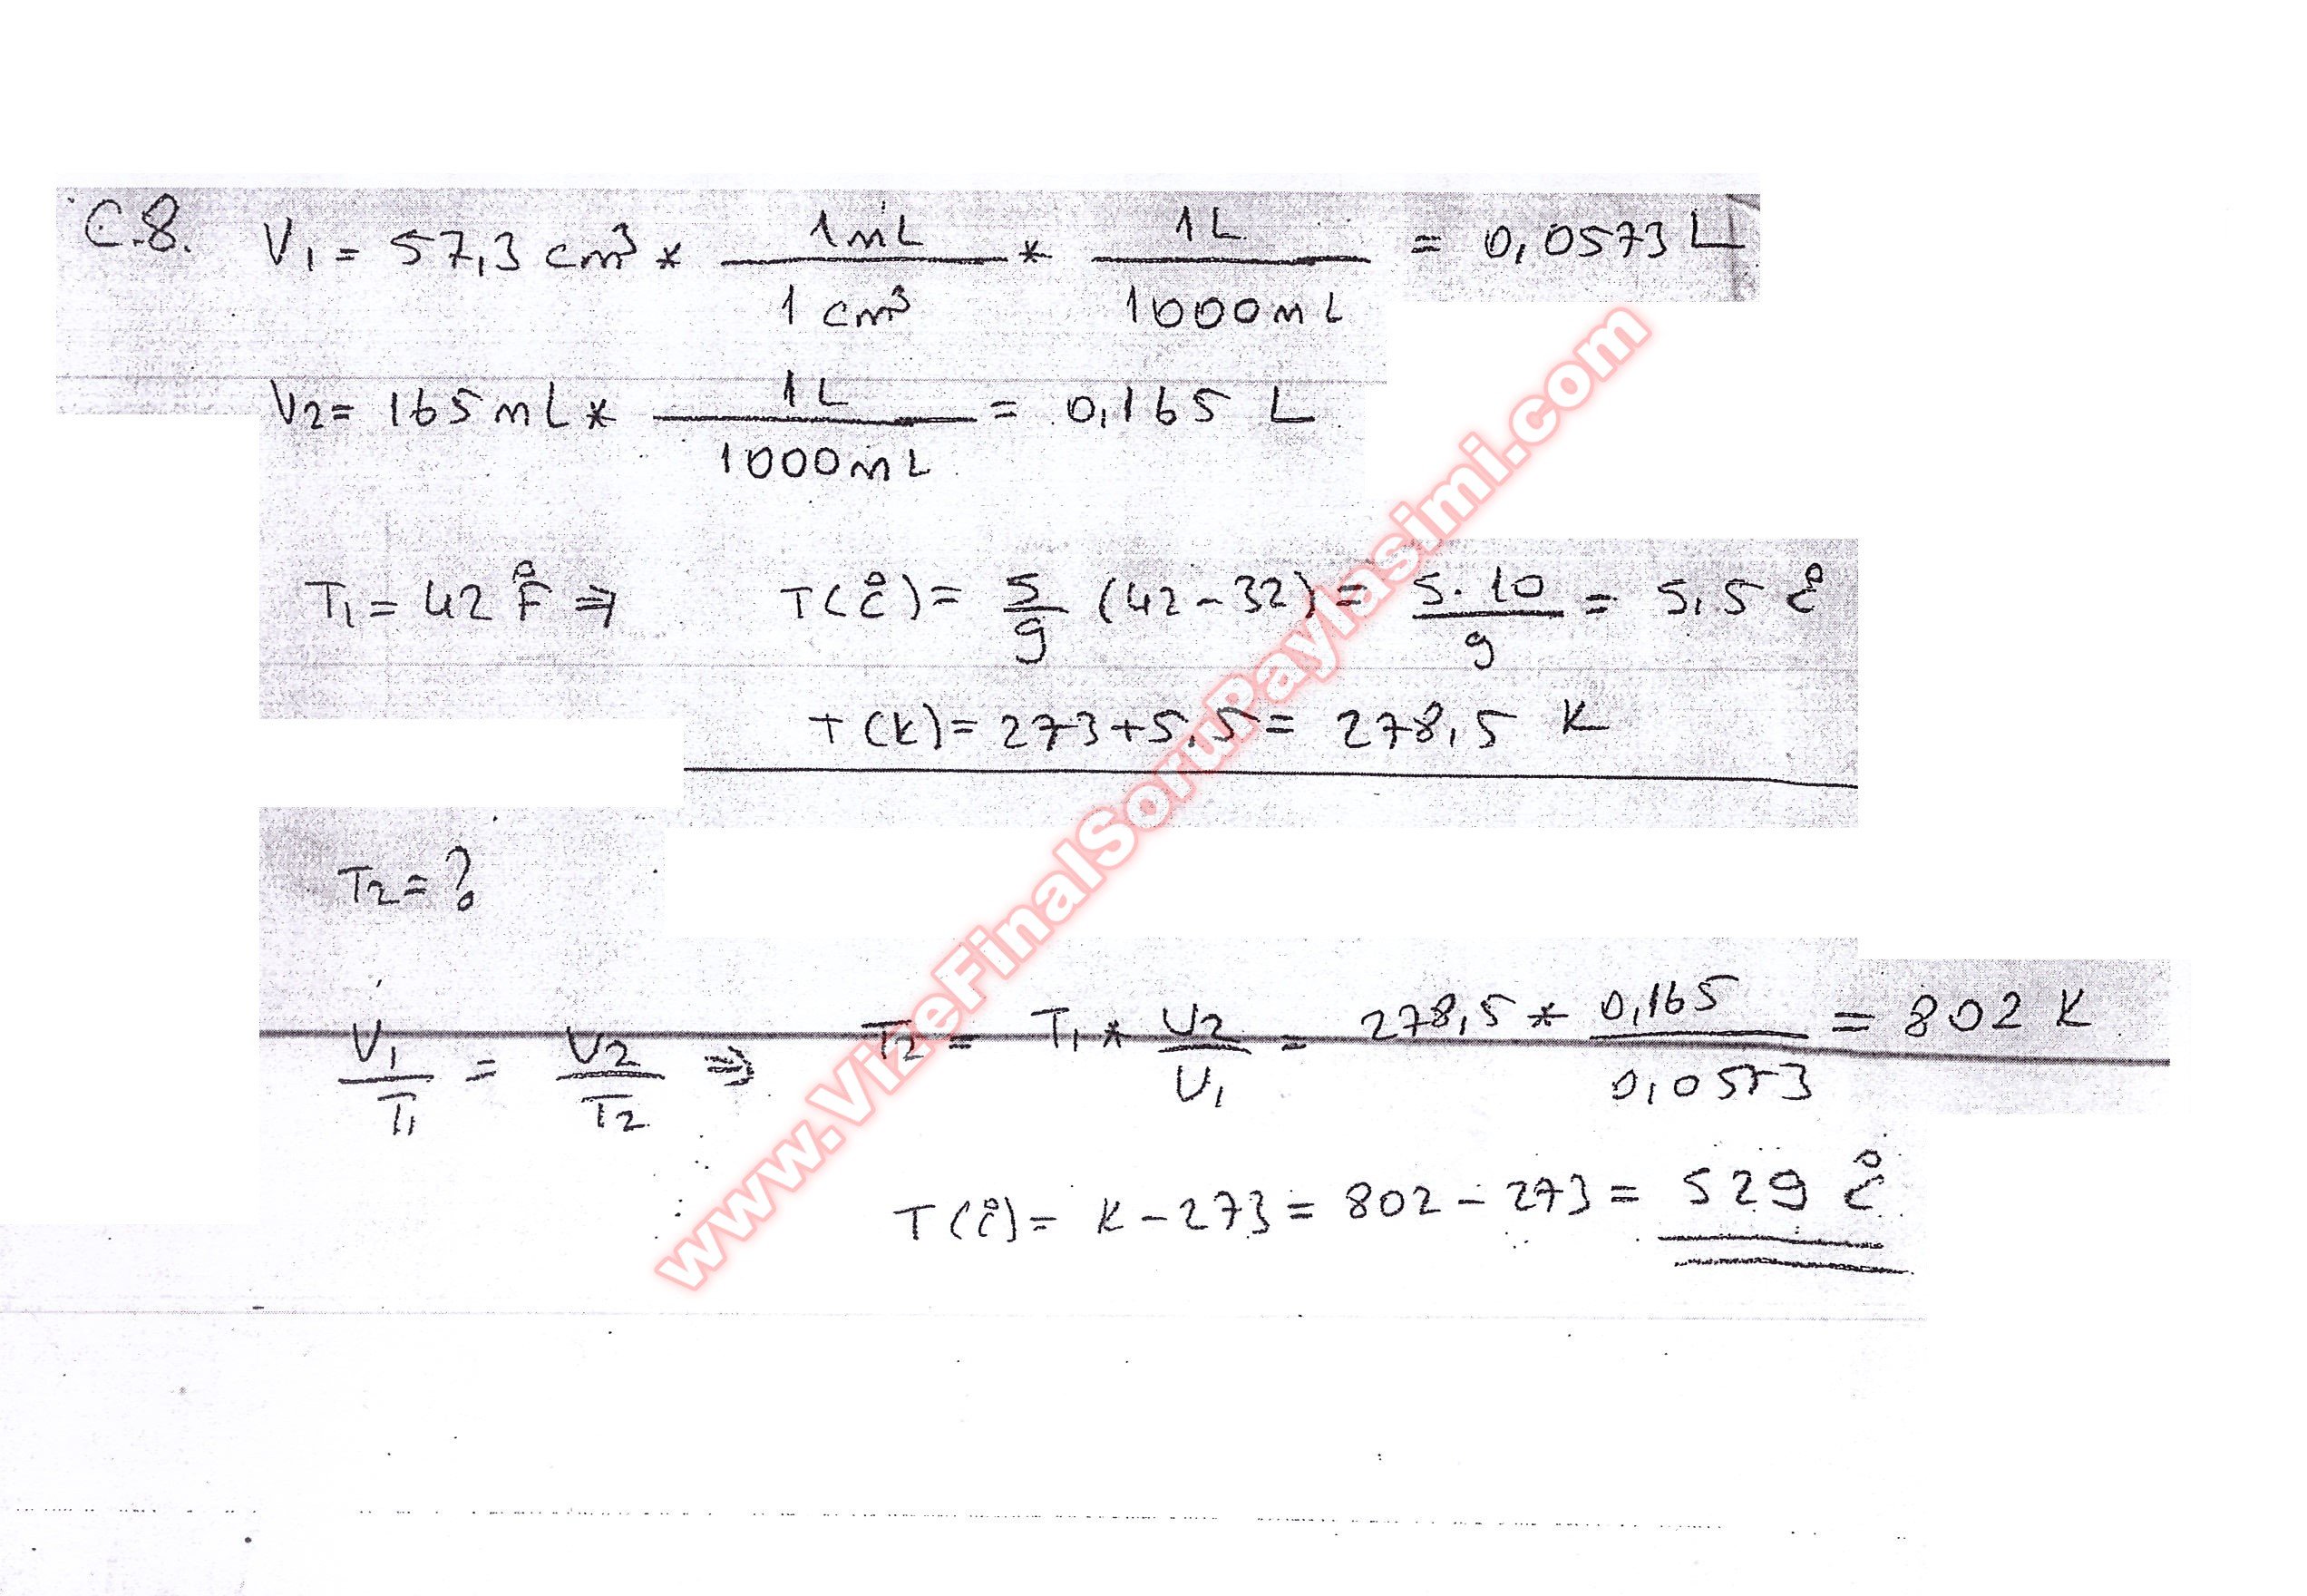 C.8. V₁ = 57,3 cm³ * 1mL / 1 cm³ * 1L / 1000mL = 0,0573 L
V₂ = 165 mL * 1L / 1000mL = 0,165 L
T₁ = 42 °F ⇒ T(°C) = 5/9 (42-32) = 5.10/9 = 5,5 °C
T(K) = 273+5,5 = 278,5 K
T₂ = ?
V₁/T₁ = V₂/T₂ ⇒ T₂ = T₁ * V₂/V₁ = 278,5 * 0,165/0,0573 = 802 K
T(°C) = K - 273 = 802 - 273 = 529 °C
www.VizeFinalSoruPaylasimi.com